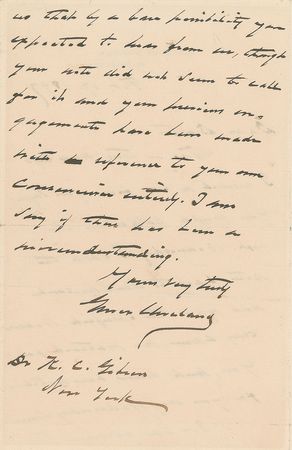 us that by a bare possibility you
expected to hear from us, though
your note did not seem to call
for it and your previous en-
gagements have been made
with reference to your own
convenience entirely. I am
sorry if there has been a
misunderstanding.
Yours very truly
Grover Cleveland
Dr K. C. Gibson
New York